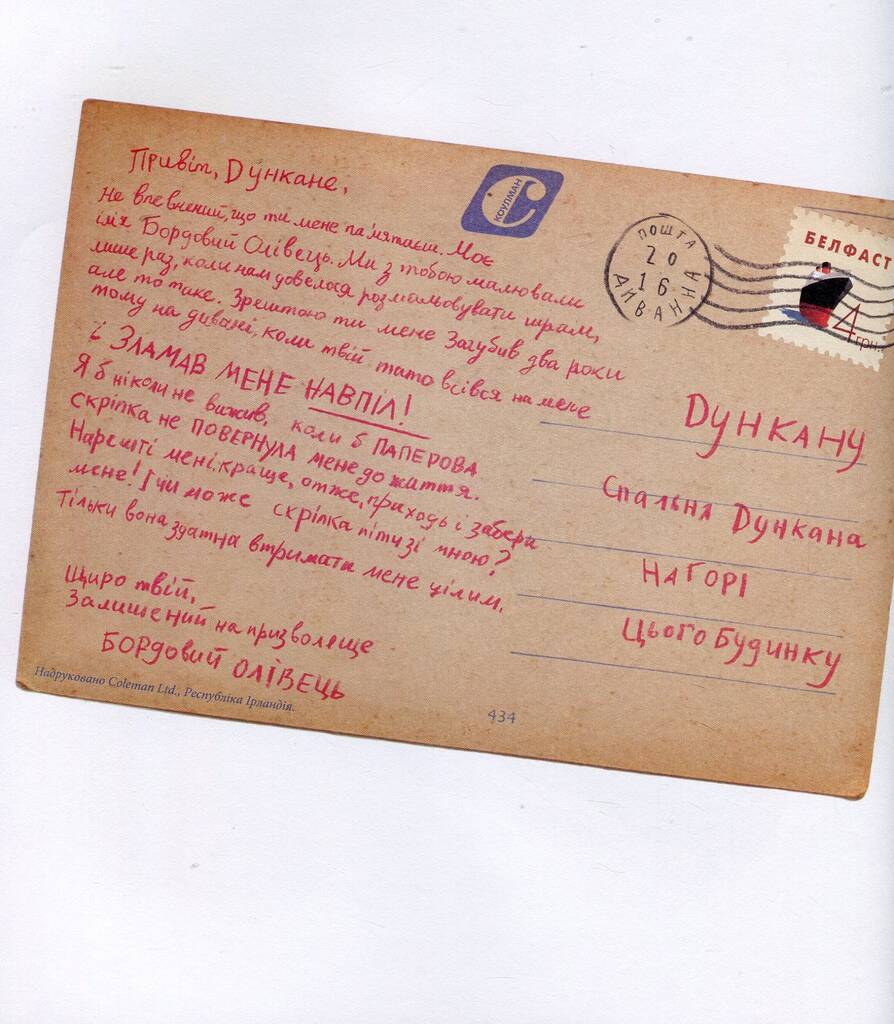 Привіт, Дункане,
Не впевнений, що ти мене пам'ятаєш. Моє
ім'я Бордовий Олівець. Ми з тобою малювали
лише раз, коли нам довелося розмальовувати шрам,
але то таке. Зрештою ти мене загубив два роки
тому на дивані, коли твій тато всівся на мене
і ЗЛАМАВ МЕНЕ НАВПІЛ!
Я б ніколи не вижив, коли б ПАПЕРОВА
скріпка не ПОВЕРНУЛА мене до життя.
Нарешті мені краще, отже, приходь і забери
мене! І чи може скріпка піти зі мною?
Тільки вона здатна втримати мене цілим.
Щиро твій,
Залишений на призволяще
БОРДОВИЙ ОЛІВЕЦЬ
Надруковано Coleman Ltd., Республіка Ірландія.
434
КОУЛМАН
ПОШТА
20
16
ДИВАННА
БЕЛФАСТ
4 грн.
ДУНКАНУ
Спальня Дункана
НАГОРІ
Цього Будинку